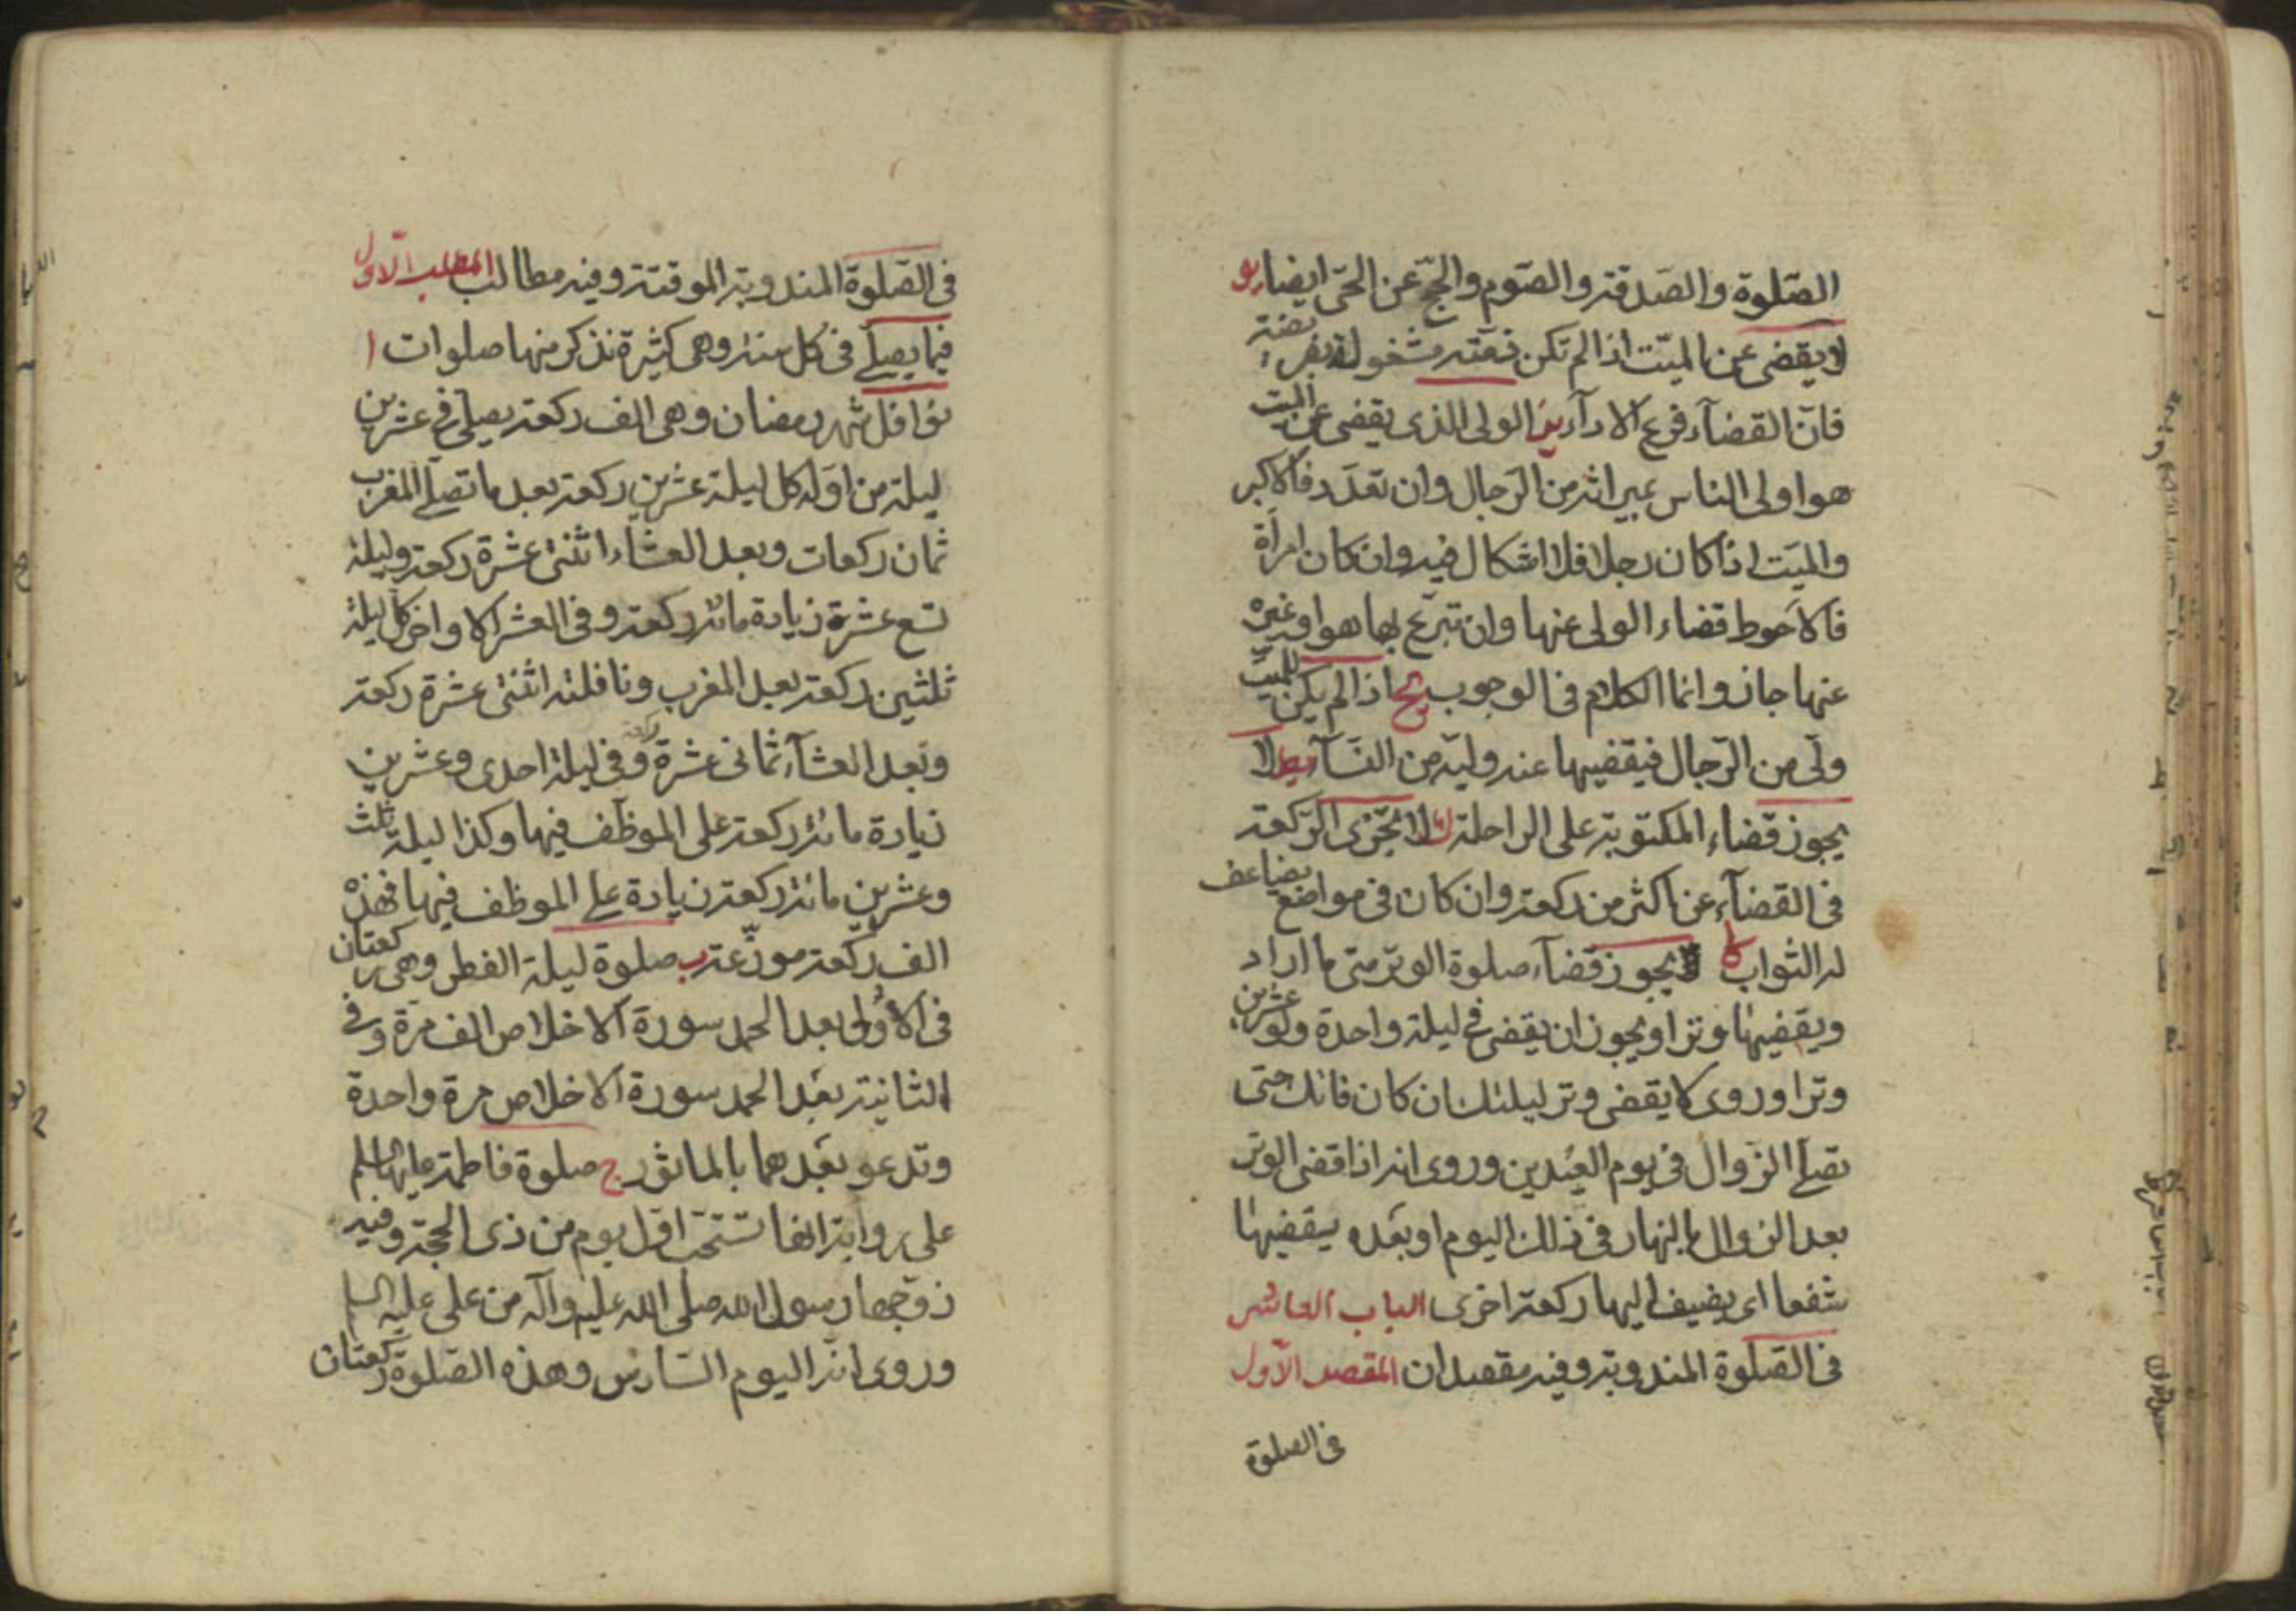 الصّلوة والصّدقة والصّوم والحجّ عن الحیّ ایضا یو
لا یقضی عن المیّت اذا لم تکن ذمّته مشغولة بفریضة
فانّ القضآء فرع الادآء یز الولی الذی یقضی عن المیت
هو اولی الناس بمیراثه من الرّجال وان تعدّد فالاکبر
والمیّت اذا کان رجلا فلا اشکال فیه وان کان امرأة
فالاحوط قضاء الولی عنها وان تبرّع بها هو او غیره
عنها جاز وانما الکلام فی الوجوب یح اذا لم یکن للمیّت
ولّی من الرّجال فیقضیها عنه ولیّه من النسآء یط لا
یجوز قضاء المکتوبة علی الراحلة ك لا تجزی الرّکعة
فی القضآء عن اکثر من رکعة وان کان فی مواضع یضاعف
له الثواب کا یجوز قضآء صلوة الوتر متی ما اراد
ویقضیها وترا ویجوز ان یقضی فی لیلة واحدة ولو عشرین
وترا وروی لا یقضی وتر لیلتك ان کان فاتك حتی
تصلّے الزوال فی یوم العیدین وروی انه اذا قضی الوتر
بعد الزوال بالنهار فی ذلك الیوم او بعده یقضیها
شفعا ای یضیف الیها رکعة اخری الباب العاشر
فی الصّلوة المندوبة وفیه مقصدان المقصد الاوّل
فی الصلوة
فی الصّلوة المندوبة الموقتة وفیه مطالب المطلب الاوّل
فیما یصلّے فی کل سنة وهی کثیرة نذکر منها صلوات ا
نوافل شهر رمضان وهی الف رکعة یصلی فی عشرین
لیلة من اوّله کل لیلة عشرین رکعة بعد ما تصلّے المغرب
ثمان رکعات وبعد العشاء اثنتی عشرة رکعة ولیلة
تسع عشرة زیادة مائة رکعة وفی العشر الاواخر کل لیلة
ثلثین رکعة بعد المغرب ونافلته اثنتی عشرة رکعة
وبعد العشآء ثمانی عشرة وفی لیلة احدی وعشرین
زیادة مائة رکعة علی الموظّف فیها وکذا لیلة ثلث
وعشرین مائة رکعة زیادة علی الموظف فیها فهذه
الف رکعة موزّعة ب صلوة لیلة الفطر وهی رکعتان
فی الاولی بعد الحمد سورة الاخلاص الف مرة وفی
الثانیة بعد الحمد سورة الاخلاص مرة واحدة
وتدعو بعدهما بالماثور ج صلوة فاطمة علیها السلم
علی روایة انها تستحبّ اوّل یوم من ذی الحجة وفیه
زوّجها رسول الله صلی الله علیه وآله من علی علیه السلم
وروی انه الیوم السادس وهذه الصّلوة رکعتان